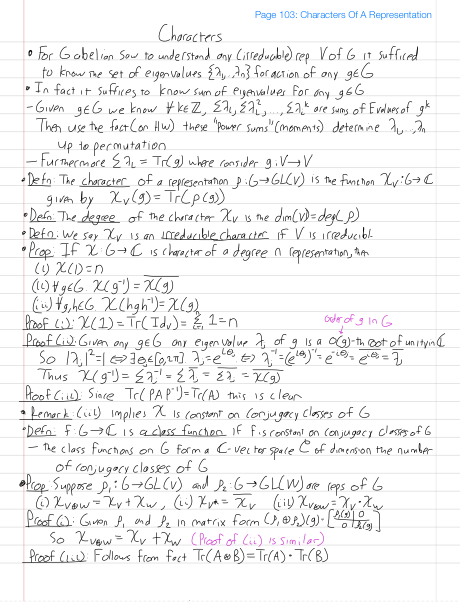 Page 103: Characters Of A Representation
Characters
• For G abelian saw to understand any (irreducible) rep V of G it sufficed
to know the set of eigenvalues {λ₁,..,λₙ} for action of any g∈G
• In fact it suffices to know sum of eigenvalues for any g∈G
– Given g∈G we know ∀k∈ℤ, Σλᵢ, Σλᵢ²,..., Σλᵢᵏ are sums of Evalues of gᵏ
Then use the fact (on HW) these "Power sums" (moments) determine λ₁,..,λₙ
up to permutation
– Furthermore Σλᵢ = Tr(g) where consider g:V→V
• Defn: The character of a representation ρ:G→GL(V) is the function χᵥ:G→ℂ
given by χᵥ(g) = Tr(ρ(g))
• Defn: The degree of the character χᵥ is the dim(V)=deg(ρ)
• Defn: We say χᵥ is an irreducible character if V is irreducibl
• Prop: If χ:G→ℂ is character of a degree n representation, then
(i) χ(1)=n
(ii) ∀g∈G. χ(g⁻¹) = \overline{χ(g)}
(iii) ∀g,h∈G. χ(hgh⁻¹)=χ(g)
Proof (i): χ(1)=Tr(Idᵥ)=Σ1=n
order of g in G
Proof (ii): Given any g∈G any eigenvalue λᵢ of g is a o(g)-th root of unity in ℂ
So |λᵢ|²=1 ⟺ ∃θᵢ∈[0,2π]. λᵢ=e^{iθᵢ} ⟺ λᵢ⁻¹=(e^{iθᵢ})⁻¹=e^{-iθᵢ}=\overline{e^{iθᵢ}}=\overline{λᵢ}
Thus χ(g⁻¹)=Σλᵢ⁻¹=Σ\overline{λᵢ}=\overline{Σλᵢ}=\overline{χ(g)}
Proof (iii): Since Tr(PAP⁻¹)=Tr(A) this is clear
• Remark: (iii) implies χ is constant on conjugacy classes of G
• Defn: f:G→ℂ is a class function if f is constant on conjugacy classes of G
– the class functions on G form a ℂ-vector space C of dimension the number
of conjugacy classes of G
• Prop: Suppose ρ₁:G→GL(V) and ρ₂:G→GL(W) are reps of G
(i) χ_{V⊕W} = χ_V + χ_W, (ii) χ_{V*} = \overline{χ_V} (iii) χ_{V⊗W}=χ_V·χ_W
Proof (i): Given ρ₁ and ρ₂ in matrix form (ρ₁⊕ρ₂)(g)=[ρ₁(g) 0 / 0 ρ₂(g)]
So χ_{V⊕W} = χ_V + χ_W (Proof of (ii) is similar)
Proof (iii): Follows from fact Tr(A⊗B)=Tr(A)·Tr(B)